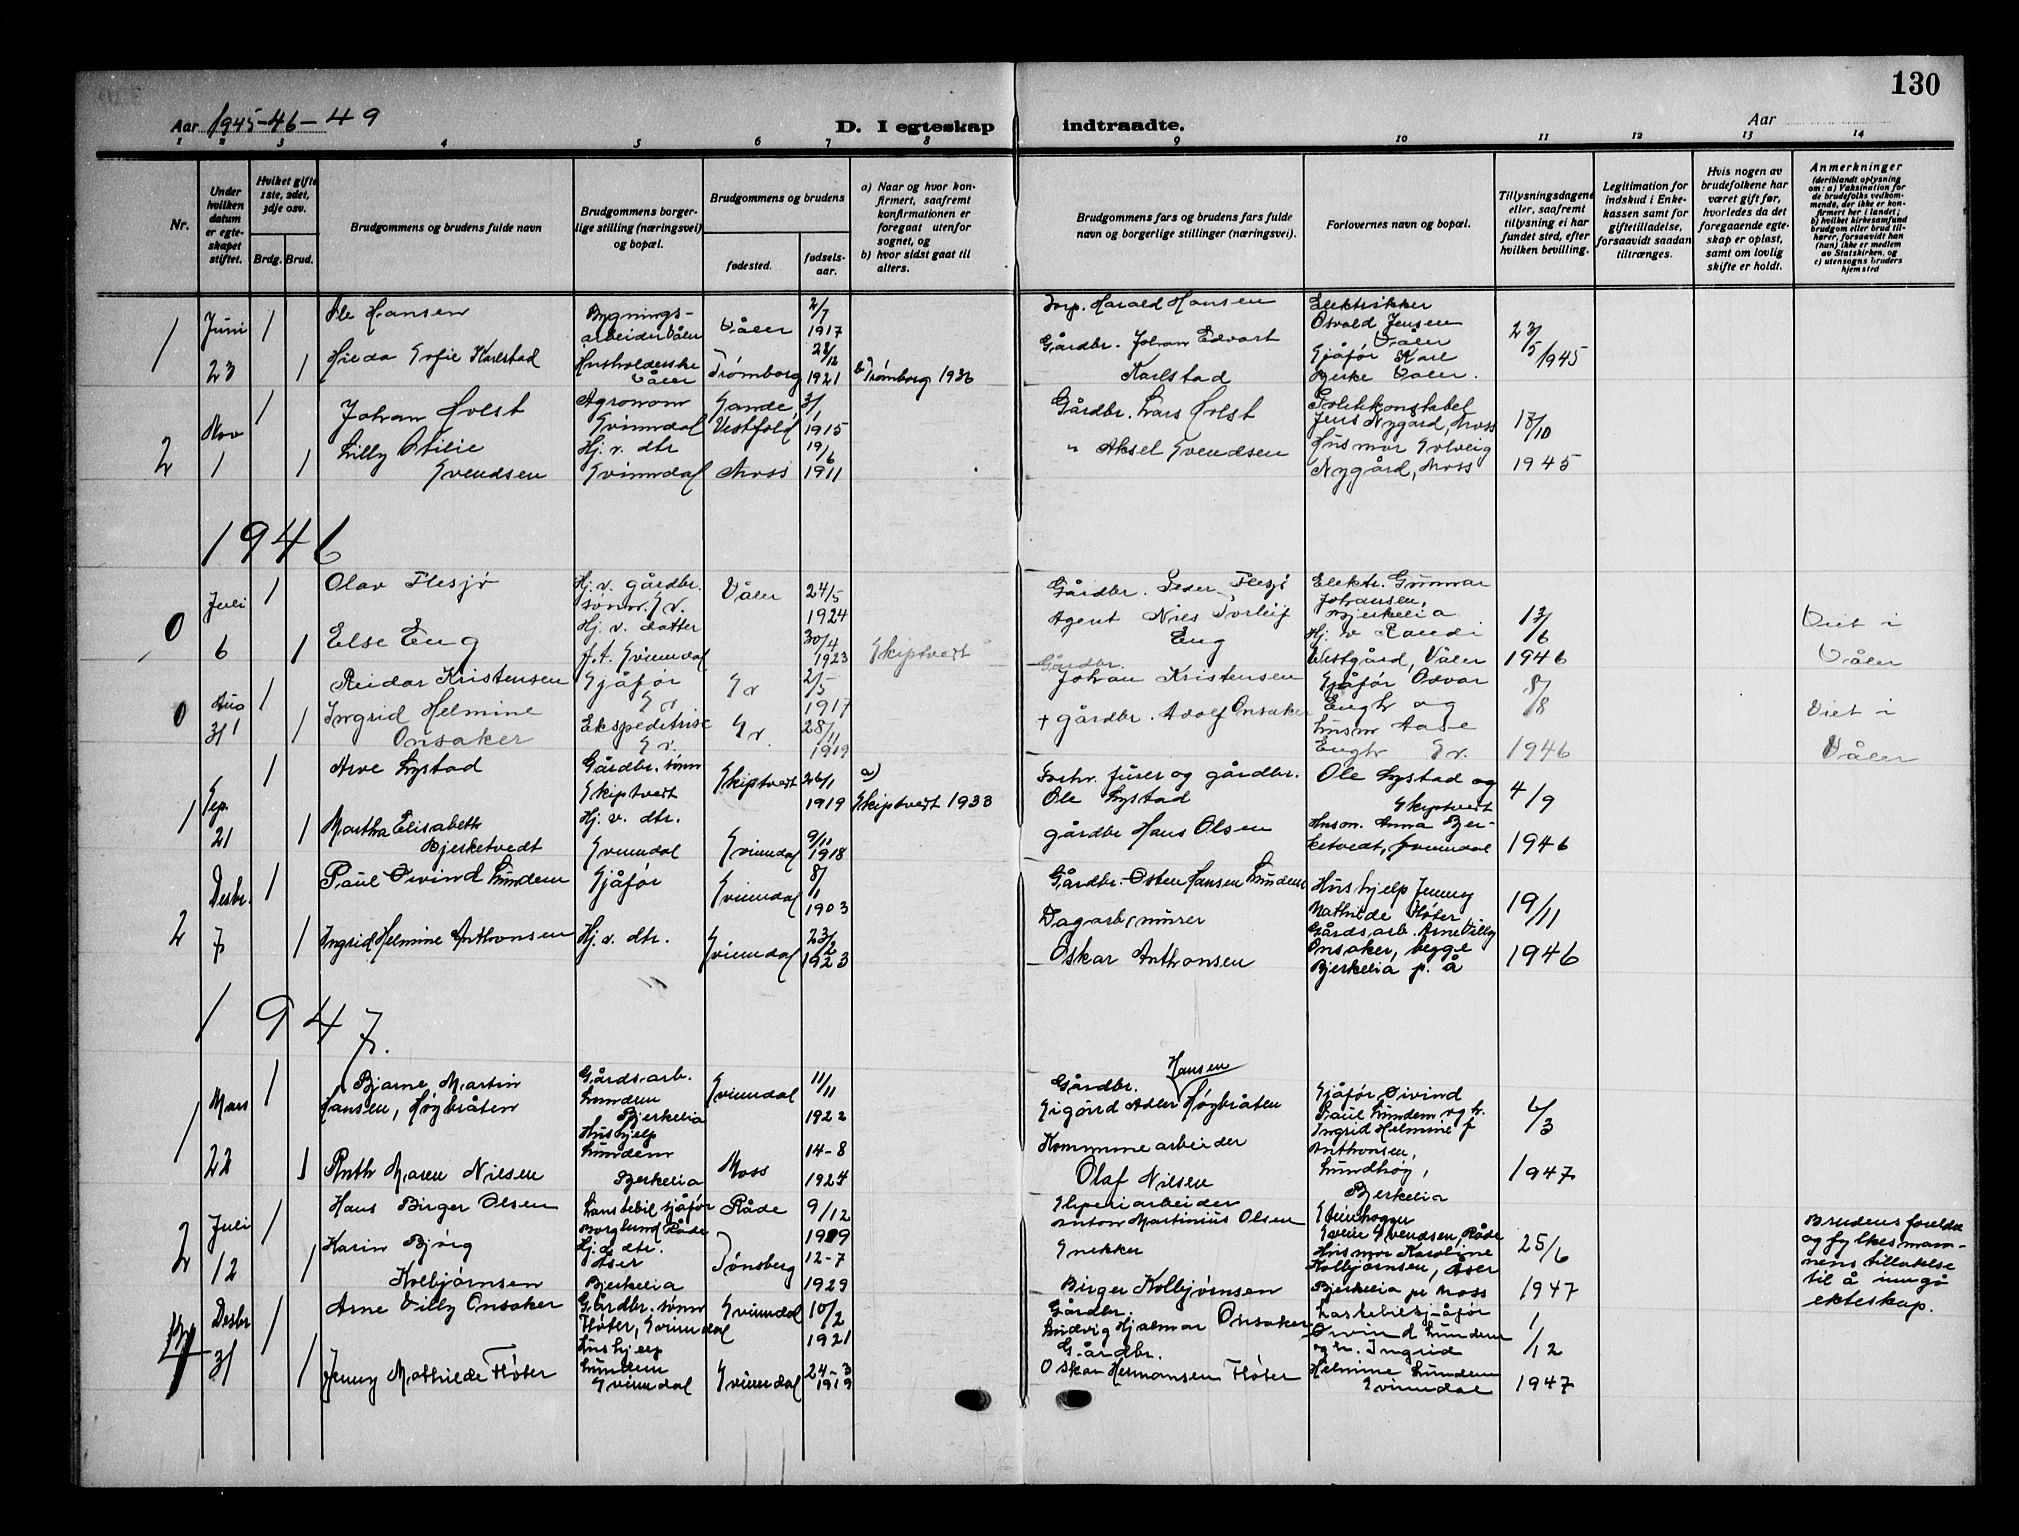 130
Aar 1945-46-49
D. I egteskap indtraadte.
Aar
1 2 3 4 5 6 7 8 9 10 11 12 13 14
Nr.
Under hvilken datum er egteskapet stiftet.
Hvilket gifte 1ste, 2det, 3dje osv.
Brdg. Brud.
Brudgommens og brudens fulde navn
Brudgommens borgerlige stilling (næringsvei) og bopæl.
Brudgommens og brudens
fødested.
fødselsaar.
a) Naar og hvor konfirmert, saafremt konfirmationen er foregaat utenfor sognet, og
b) hvor sidst gaat til alters.
Brudgommens fars og brudens fars fulde navn og borgerlige stillinger (næringsvei).
Forlovernes navn og bopæl.
Tillysningsdagene eller, saafremt tillysning ei har fundet sted, efter hvilken bevilling.
Legitimation for indskud i Enkekassen samt for giftetilladelse, forsaavidt saadan tiltrænges.
Hvis nogen av brudefolkene har været gift før, hvorledes da det foregaaende egteskap er opløst, samt om lovlig skifte er holdt.
Anmerkninger
(deriblandt oplysning om: a) Vaksination for de brudefolks vedkommende, der ikke er konfirmert her i landet;
b) hvilket kirkesamfund brudgom eller brud tilhører, forsaavidt han (hun) ikke er medlem av Statskirken, og
c) utensogns bruders hjemsted
1 Juni 23
1 Ole Hansen
Bygningsarbeider Våler
Våler
2/7 1917
Harald Hansen
Elektrikker Osvald Jensen Våler
23/5 1945
1 Karlstad
Våler
Trømborg
28/12 1921
Trømborg 1936
Gårdbr. Johan Edvart Karlstad
Sjåfør Karl Bjerke Våler.
2 Nov 1
1 Johan Holst
Agronom Svinndal
Sande, Vestfold
3/1 1915
Gårdbr. Lars Holst
Politikonstabel Jens Nygård, Moss
17/10 1945
1 Lilly Otilie Svendsen
Hj. v. dtr Svinndal
Moss
19/6 1911
" Aksel Svendsen
Husmor Solveig Nygård, Moss
1946
0 Juli 6
1 Olav Flesjø
Hj. v. gårdbr. sønn. Sv.
Våler
24/5 1924
Gårdbr. Peder Flesjø
Elektr. Gunnar Johansen, Bjerkelia
13/6 1946
Viet i Våler
1 Else Eng
Hj. v. datter Svinndal
30/4 1923
Skiptvedt
Agent Nils Torleif Eng
Hj. v Randi Vestgård, Våler
0 Aug 31
1 Reidar Kristensen
Sjåfør Sv
Sv
2/5 1917
Gårdbr. Johan Kristensen
Sjåfør Odvar Engh og
8/8 1946
Viet i Våler
1 Ingrid Helmine Onsaker
Ekspeditrise Sv.
Sv.
28/11 1919
+ gårdbr. Adolf Onsaker
husm Aase Engh Sv.
1 Sep. 21
1 Arve Lystad
Gårdbr. sønn Skiptvedt
Skiptvedt
26/1 1919
a) Skiptvedt 1933
Forhv. furer og gårdbr. Ole Lystad
Ole Lystad og Skiptvedt
4/9 1946
1 Martha Elisabeth Bjerketvedt
Hj. v. dtr. Svinndal
Svinndal
9/11 1918
gårdbr Hans Olsen
Husm. Anna Bjerketvedt, Svinndal
2 Desbr. 7
1 Paul Øivind Lundem
Sjåfør
Svinndal
8/1 1903
Gårdbr. Osten Hansen Lundem
Hushjelp Jenny Mathilde Fløter
19/11 1946
1 Ingrid Helmine Anthonsen
Hj. v. dtr.
Svinndal
23/2 1923
Dagarb/murer Oskar Anthonsen
Gårdsarb. Arne Villy Onsaker, begge Bjerkelia p. å
1947.
1 Mars 22
1 Bjarne Martin Hansen, Høybråten
Gårdsarb. Lundem Bjerkelia
Svinndal
11/11 1922
Gårdbr. Hansen Sigurd Adler Høybråten
Sjåfør Øivind Paul Lundem og fr. Ingrid Helmine f Anthonsen, Lundhøg, Bjerkelia
6/3 1947
1 Ruth Maren Nilsen
Hushjelp Lundem Bjerkelia
Moss
14-8 1924
Kommunearbeider Olaf Nilsen
2 Juli 12
1 Hans Birger Olsen
Lastebilsjåfør Borglund Råde
Råde
9/12
Sliperiarbeider Anton Martinius Olsen
Stenhogger Svendsen, Råde
25/6 1947
Brudens foreldre og fylkesmannens tillatelse til å inngå ekteskap.
1 Karin Bjørg Kolbjørnsen
Hj. v. dtr. Åser Bjerkelia
Tønsberg
12-7 1929
Snekker Birger Kolbjørnsen
Husmor Karoline Kolbjørnsen, Åser Bjerkelia pr Moss
Desbr 31
1 Arne Villy Onsaker
Gårdbr. sønn Fløter, Svinndal
Svinndal
10/2 1921
Gårdbr. Ludvig Hjalmar Onsaker
Lastebilsjåfør Øivind Lundem og fr. Ingrid Helmine Lundem Svinndal
1/12 1947
1 Jenny Mathilde Fløter
Hushjelp Lundem Svinndal
Svinndal
24-3 1919
Gårdbr. Oskar Hermansen Fløter